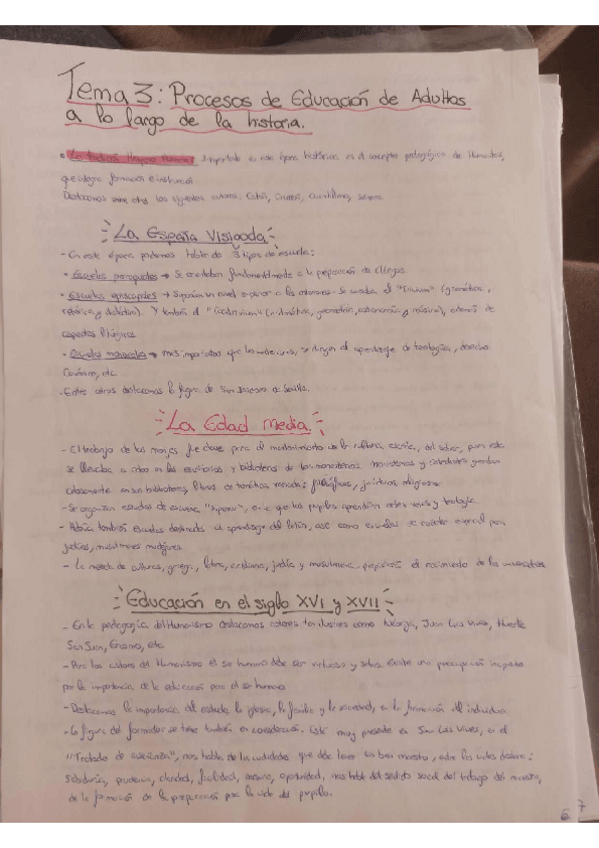 Tema 3: Procesos de Educación de Adultos
a lo largo de la historia.
• La tradición Hispano Romana: Importante en esta época histórica es el concepto pedagógico de Humanitas,
que integra formación e instrucción
Destacamos entre otros los siguientes autores: Catón, Cicerón, Quintiliano, Séneca
La España Visigoda
- En esta época podemos hablar de 3 tipos de escuela:
• Escuelas parroquiales → Se orientaban fundamentalmente a la preparación de clérigos
• Escuelas episcopales → Suponían un nivel superior a las anteriores. Se cursaba el "Trivium" (gramática,
retórica y dialéctica). Y también el "Cuadrivium" (aritmética, geometría, astronomía y música), además de
aspectos litúrgicos.
• Escuelas monacales → más importantes que las anteriores, se dirigen al aprendizaje de teología, derecho
Canónico, etc.
- Entre otros destacamos la figura de San Isidoro de Sevilla.
La Edad Media
- El trabajo de los monjes fue clave para el mantenimiento de la cultura, escrita, del saber, pues este
se llevaba a cabo en los escritorios y bibliotecas de los monasterios. Monasterios y catedrales guardan
celosamente en sus bibliotecas, libros de temática variada: filosóficas, jurídicas, religiosas
- Se organizan escuelas de escuelas "superior", en las que los pupilos aprendían artes y teología
- Había también escuelas destinadas al aprendizaje del latín, así como escuelas de carácter especial para
judíos, musulmanes mudéjares.
- La mezcla de culturas, griega, latina, cristiana, judía y musulmana, propiciará el nacimiento de las universidades
Educación en el siglo XVI y XVII
- En la pedagogía del Humanismo destacamos autores tan ilustres como Nebrija, Juan Luis Vives, Huarte
San Juan, Erasmo, etc
- Para los autores del Humanismo el ser humano debe ser virtuoso y sabio. Existe una preocupación
por la importancia de la educación para el ser humano
- Destacamos la importancia del estado, la iglesia, la familia y la sociedad, en la formación del individuo
- La figura del formador se tiene también en consideración. Está muy presente en Juan Luis Vives, en el
"Tratado de enseñanza", nos habla de las cualidades que debe tener un buen maestro, entre las cuales destaca:
Sabiduría, prudencia, claridad, facilidad, oportunidad, nos habla del sentido social del trabajo del maestro,
de la formación de la preparación para la vida del pupilo.
6
7